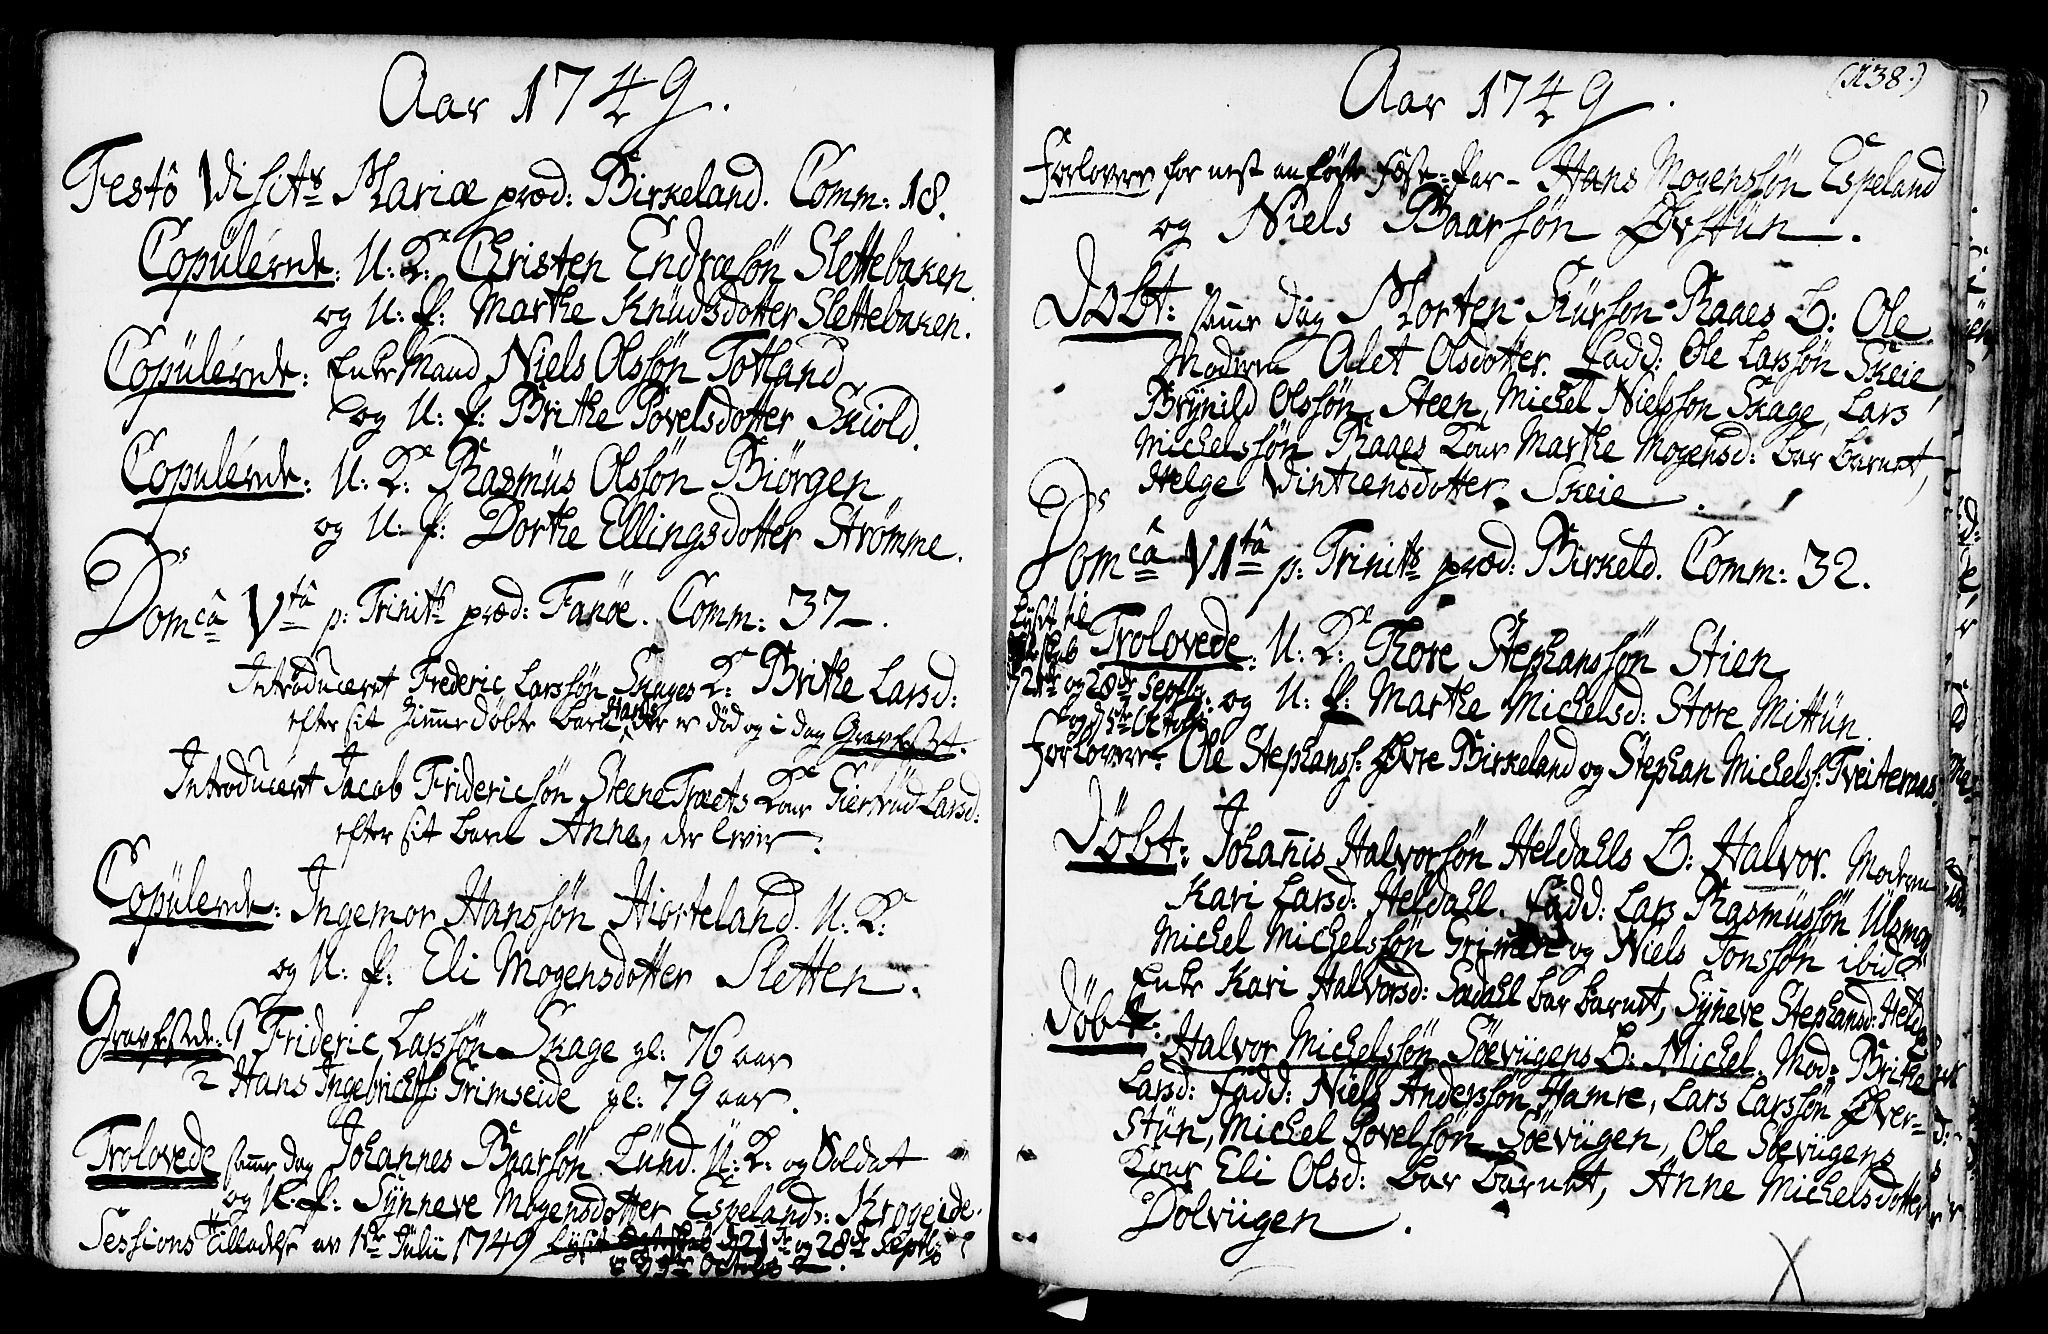 Aar 1749.
Festô Visit: Mariæ præd: Birkeland. Comm: 18.
Copulérede: U: K: Christen Endræsøn Slettebaken
og U: P: Marthe Knudsdotter Slettebaken.
Copulérede: Enke Mand Niels Olssøn Totland
og U: P: Brithe Povelsdotter Skiold.
Copulérede: U: K: Rasmus Olssøn Biørgen
og U: P: Dorthe Ellingsdotter Strømme.
Domcâ Vtâ p: Trinit: præd: Fanöe. Comm: 37.
Introduceret Frederic Larssøn Skages K: Brithe Larsd:
efter sit hiemmedøbte barn Hans, der er død og i dag Gravfæstet.
Introduceret Jacob Fridericsøn Steene Træets Kone Giertrud Larsd:
efter sit barn Anne, der lever.
Copulerede: Ingemor Hanssøn Hiorteland. U: K:
og U: P: Eli Mogensdotter Sletten.
Gravfæstede: 1 Frideric Larssøn Skage gl: 76 aar
2 Hans Ingebrichts: Grimseide gl: 79 aar.
Trolovede samme dag Johannes Baarsøn Lund. U: K: og Soldat
og U: P: Synneve Mogensdotter Espeland: Krogeide.
Sessions Tilladelse av 1te Julii 1749 d 21de og 28de Septb
og d 5te Octobr
Aar 1749. (138.)
Forlovere for nest anførte Fæste-Par - Hans Mogenssøn Espeland
og Niels Baarsøn Øvstün.
Döbt: samme dag Morten Kursøn Raaes B: Ole
Moderen Alet Olsdotter. Fadd: Ole Larssøn Skeie,
Brÿnild Olssøn Steen, Michel Nielssøn Skage, Lars
Michelssøn Raaes Kone Marthe Mogensd: bar barnet,
Helge Vintzensdotter Skeie.
Domcâ VItâ p: Trinit: præd: Birkeld. Comm: 32.
Lyst til
21de og 28de Septbr:
og d 5te Octobr
Trolovede: U: K: Thore Stephanssøn Stien
og U: P: Marthe Michelsd: Store Mittün.
Forlovere: Ole Stephans: Øvre Birkeland og Stephan Michels: Tveiteraas.
Döbt: Johannis Halvorsøn Heldahls B: Halvor. Moderen
Kari Larsd: Heldahl. Fadd: Lars Rasmussøn Ulsmog,
Michel Michelssøn Grimen og Niels Jonssøn ibid:
Enke Kari Halvorsd: Sædahl bar barnet, Sÿneve Stephansd: Helda
Döbt: Halvor Michelssøn Söevügens B: Michel. Mod: Brithe
Larsd: Fadd: Niels Anderssøn Hamre, Lars Larssøn Øver-
Stün, Michel Povelsøn Söevügen, Ole Söevügens
Kone Eli Olsd: bar barnet, Anne Michelsdotter
Dolvügen.
X